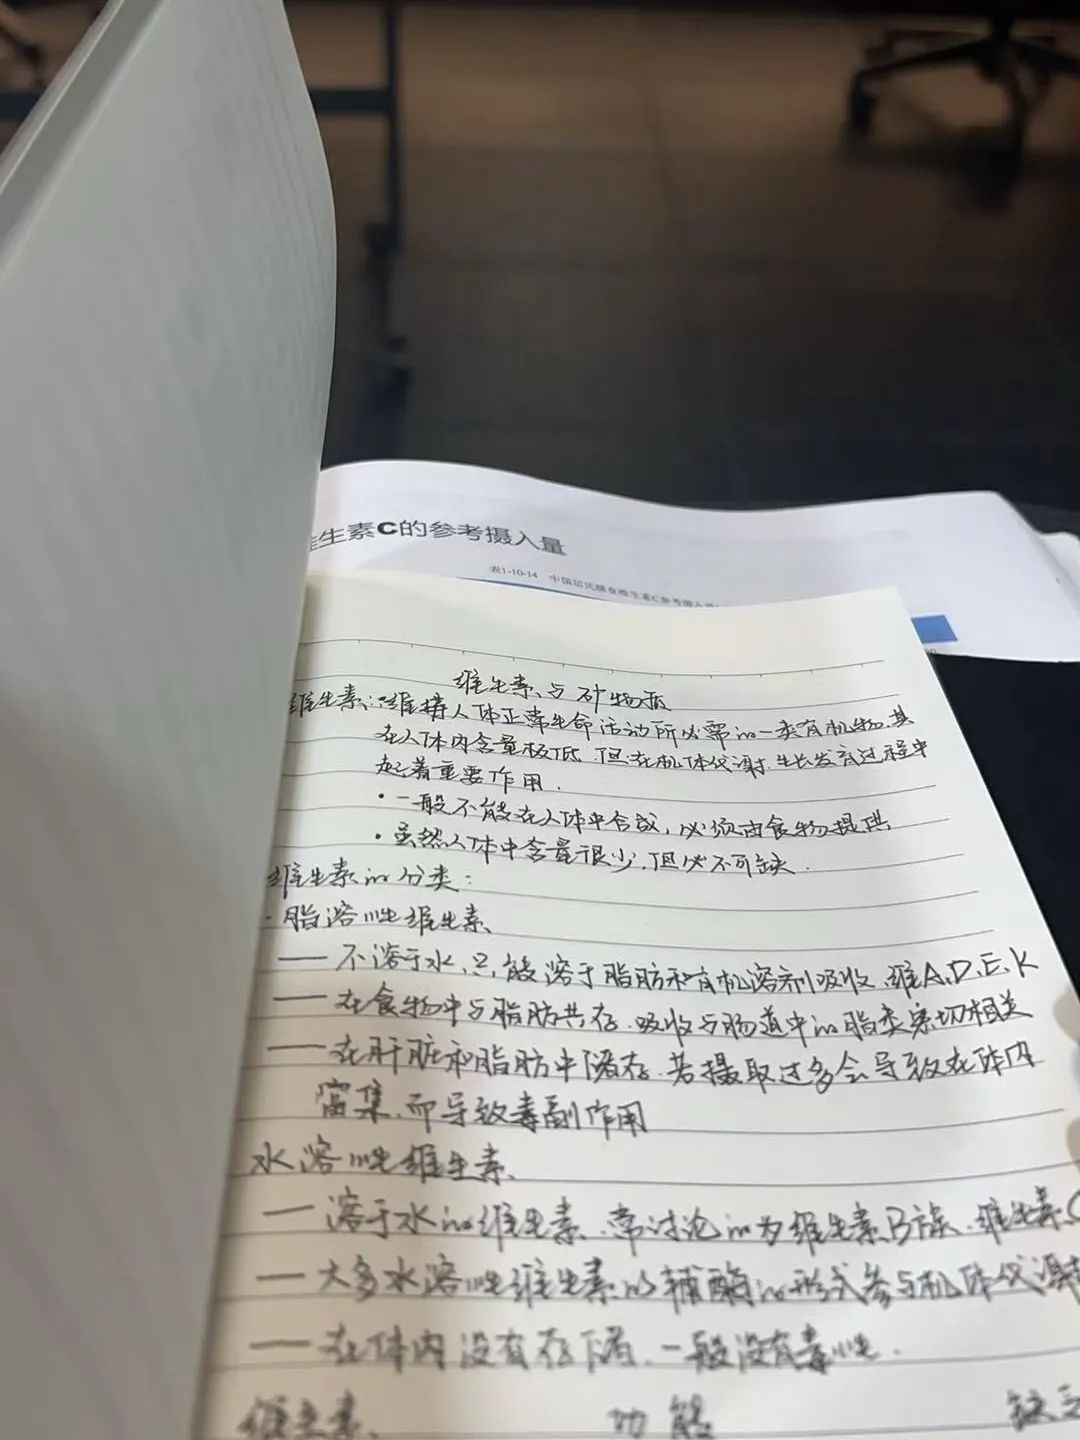 生素C的参考摄入量
表1-10-14 中国居民膳食维生素C参考摄入
维生素与矿物质
维生素:维持人体正常生命活动所必需的一类有机物.其
在人体内含量极低.但在机体代谢.生长发育过程中
起着重要作用.
·一般不能在人体中合成,必须由食物提供
·虽然人体中含量很少,但必不可缺.
维生素的分类:
·脂溶性维生素
—不溶于水,只能溶于脂肪和有机溶剂吸收.维A、D、E、K
—在食物中与脂肪共存.吸收与肠道中的脂类密切相关
—在肝脏和脂肪中储存.若摄取过多会导致在体内
富集.而导致毒副作用
水溶性维生素
—溶于水的维生素.常讨论的为维生素B族.维生素C
—大多水溶性维生素以辅酶的形式参与机体代谢
—在体内没有存储.一般没有毒性.
维生素 功能 缺乏